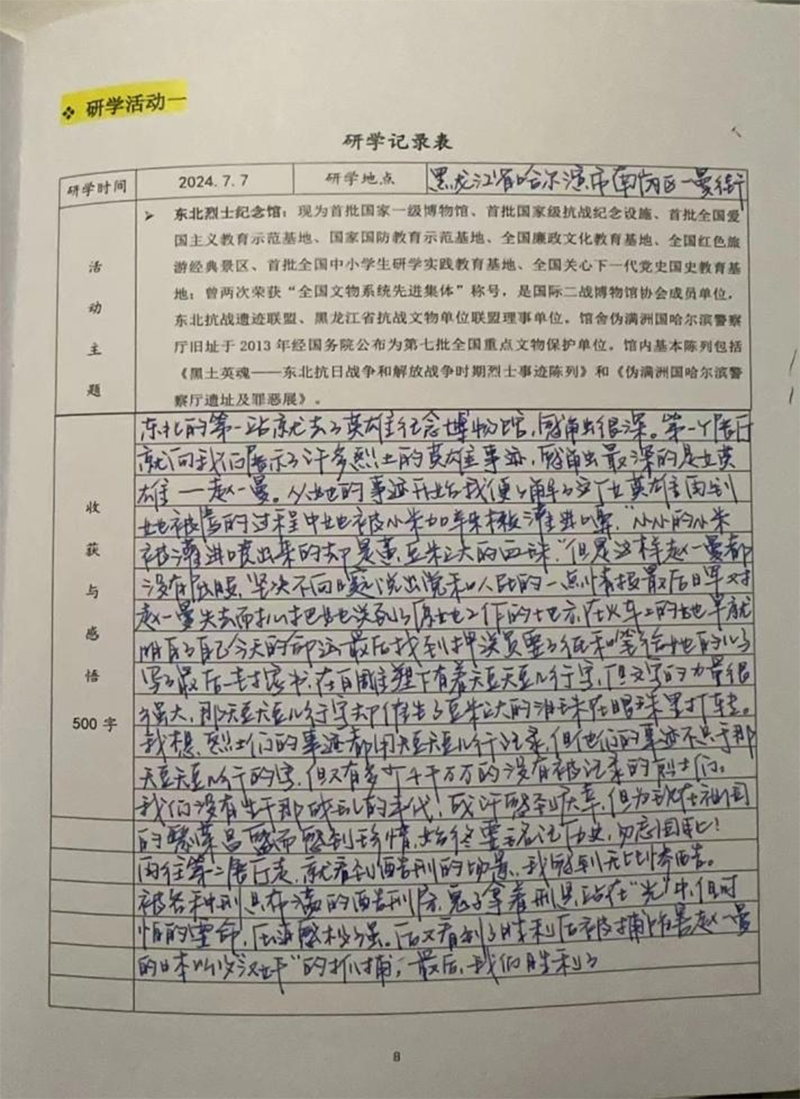 ❖ 研学活动一
研学记录表
研学时间 2024.7.7 研学地点 黑龙江省哈尔滨市南岗区一曼街
活动主题
➢ 东北烈士纪念馆：现为首批国家一级博物馆、首批国家级抗战纪念设施、首批全国爱
国主义教育示范基地、国家国防教育示范基地、全国廉政文化教育基地、全国红色旅
游经典景区、首批全国中小学生研学实践教育基地、全国关心下一代党史国史教育基
地；曾两次荣获“全国文物系统先进集体”称号，是国际二战博物馆协会成员单位，
东北抗战遗迹联盟、黑龙江省抗战文物单位联盟理事单位。馆舍伪满洲国哈尔滨警察
厅旧址于 2013 年经国务院公布为第七批全国重点文物保护单位。馆内基本陈列包括
《黑土英魂——东北抗日战争和解放战争时期烈士事迹陈列》和《伪满洲国哈尔滨警
察厅遗址及罪恶展》。
收获与感悟
500 字
东北的第一站就去了英雄纪念博物馆，感触很深。第一个展厅
就向我们展示了许多烈士的英雄事迹，感触最深的是女英
雄——赵一曼。从她的事迹开始我便
她被 的过程中她被小米加辣椒灌进 ，“小小的小米
被灌进喷出来的却是黄豆粒大的血珠”但是这样赵一曼都
没有屈服，坚决不向 说出党和人民的一点情报最后日军对
赵一曼失去 她送到了 地工作的地方，在火车上的她早就
明白了自己今天的命运最后找到押送员要了纸和笔给她的儿子
写了最后一封家书，在自雕塑下有着短短几行字，但文字的力量很
强大，那短短几行字却 了豆粒大的泪珠在眼眶里打转。
我想，烈士们的事迹都用短短几行记录，但他们的事迹不止于那
短短几行的字，但又有多少千千万万的没有被记录的烈士们。
我们没有生于那战乱的年代！或许感到庆幸，但为现在祖国
的繁荣昌盛而感到 ，始终要铭记历史，勿忘国耻！
再往第二展厅走，就看到酷刑的场景，我感到无比
被各种刑具布满的酷刑房，鬼子拿着刑具，站在“光”中，但可
怕的 ，压 感极强。后又看到了胜利后被捕 害赵一曼
的日本 “汉奸”的抓捕，最后，我们胜利了
8